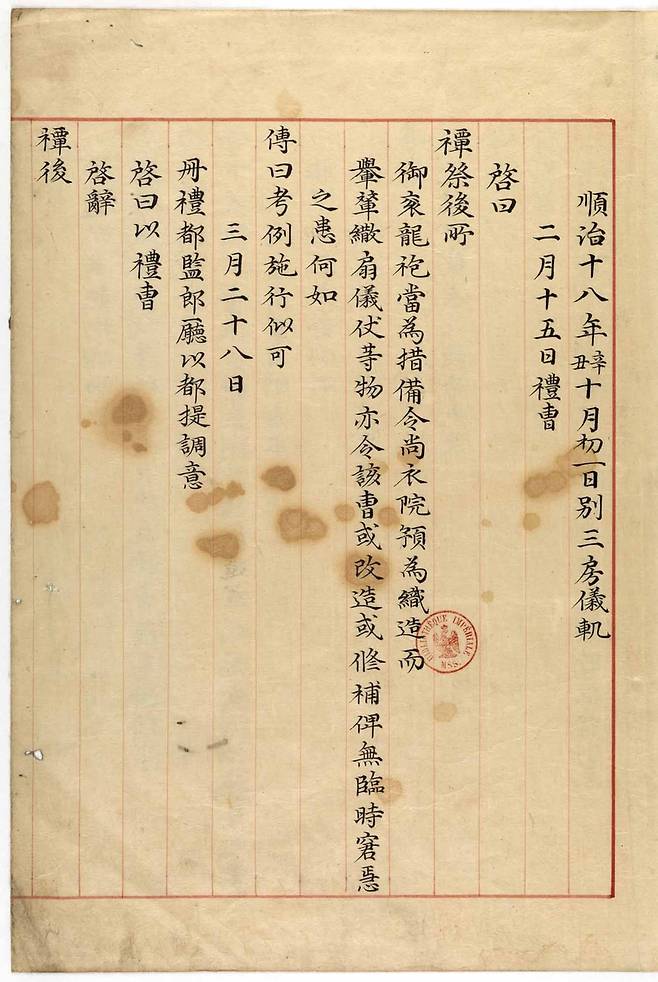 順治十八年辛丑十月初一日別三房儀軌
二月十五日禮曹
啓曰
禫祭後所
御衮龍袍當為措備令尚衣院預為織造而
轝輦繖扇儀仗等物亦令該曹或改造或修補俾無臨時窘𢚩
之患何如
傳曰考例施行似可
三月二十八日
冊禮都監郎廳以都提調意
啓曰以禮曹
啓辭
禫後
BIBLIOTHÈQUE IMPÉRIALE
MSS.